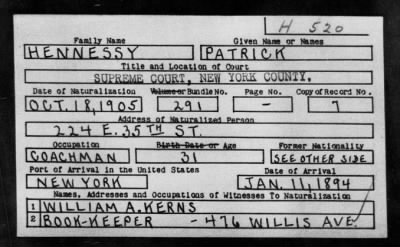 H 520
Family Name Given Name or Names
HENNESSY PATRICK
Title and Location of Court
SUPREME COURT, NEW YORK COUNTY,
Date of Naturalization Volume or Bundle No. Page No. Copy of Record No.
OCT. 18, 1905 291 - 7
Address of Naturalized Person
224 E. 35TH ST.
Occupation Birth Date or Age Former Nationality
COACHMAN 31 SEE OTHER SIDE
Port of Arrival in the United States Date of Arrival
NEW YORK JAN. 11, 1894
Names, Addresses and Occupations of Witnesses To Naturalization
1 WILLIAM A. KERNS
2 BOOK-KEEPER - 476 WILLIS AVE.